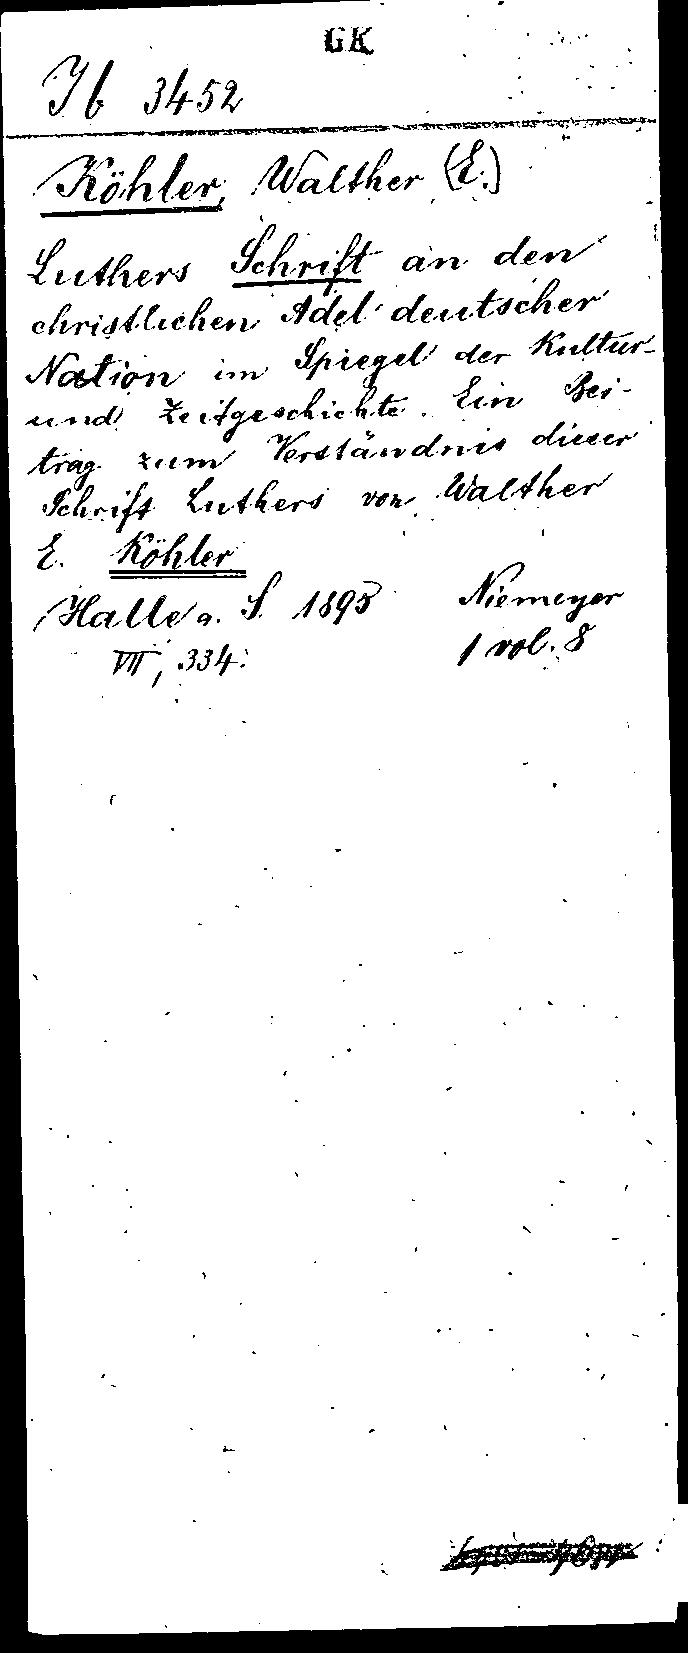 GK
Jb 3452
Köhler, Walther (E.)
Luthers Schrift an den
christlichen Adel deutscher
Nation im Spiegel der Kultur-
und Zeitgeschichte. Ein Bei-
trag zum Verständnis dieser
Schrift Luthers von Walther
E. Köhler
Halle a. S. 1895 Niemeyer
VII, 334. 1 vol. 8